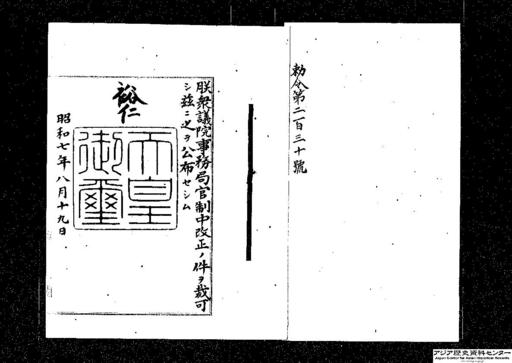 勅令第二百三十號
朕衆議院事務局官制中改正ノ件ヲ裁可
シ茲ニ之ヲ公布セシム
裕仁
天皇御璽
昭和七年八月十九日
アジア歴史資料センター
Japan Center for Asian Historical Records